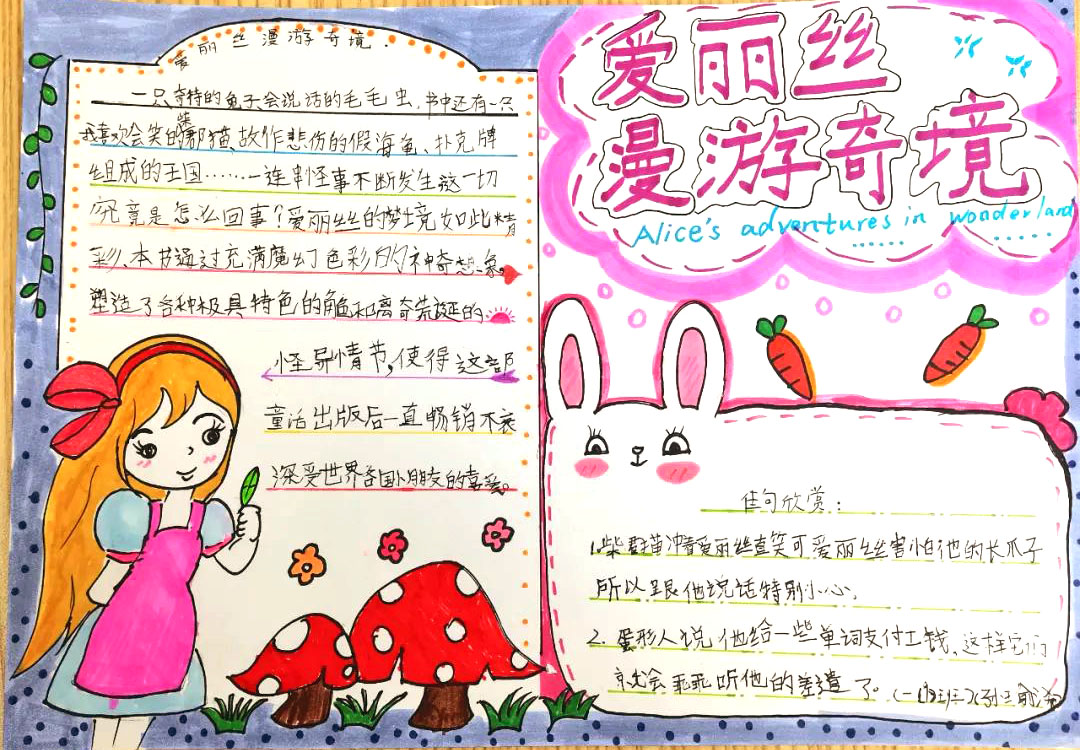 爱丽丝漫游奇境.
一只奇特的兔子会说话的毛毛虫,书中还有一只
我喜欢会笑的柴郡猫,故作悲伤的假海龟、扑克牌
组成的王国……一连串怪事不断发生这一切
究竟是怎么回事?爱丽丝的梦境如此精
彩、本书通过充满魔幻色彩的神奇想象。
塑造了各种极具特色的角色和离奇荒诞的
怪异情节,使得这部
童话出版后一直畅销不衰
深受世界各国小朋友的喜爱。
爱丽丝
漫游奇境
Alice's adventures in wonderland
佳句欣赏:
1.柴郡猫冲着爱丽丝直笑可爱丽丝害怕他的长爪子
所以跟他说话特别小心,
2. 蛋形人说他给一些单词支付工钱,这样它们
就会乖乖听他的差遣了。